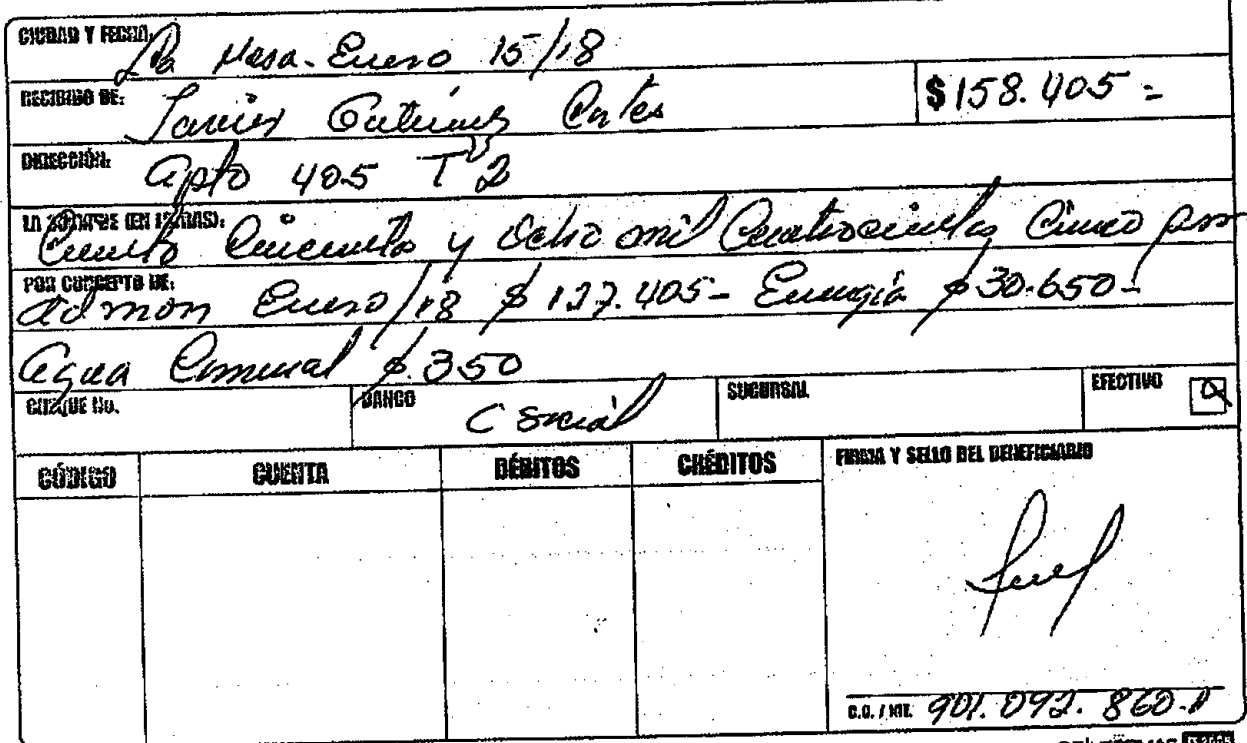 CIUDAD Y FECHA: La Mesa - Enero 15/18
RECIBIDO DE: Javier Gutierrez Cortes $ 158.405=
DIRECCIÓN: Apto 405 T 2
LA SUMA DE (EN LETRAS):
Ciento Cincuenta y Ocho mil Cuatrocientos Cinco
POR CONCEPTO DE:
Admon Enero/18 $ 127.405- Energía $30.650-
Agua Comunal $.350
CHEQUE No. BANCO C Social SUCURSAL EFECTIVO
CÓDIGO CUENTA DÉBITOS CRÉDITOS FIRMA Y SELLO DEL BENEFICIARIO
C.C. / NIT. 901.092.860-1